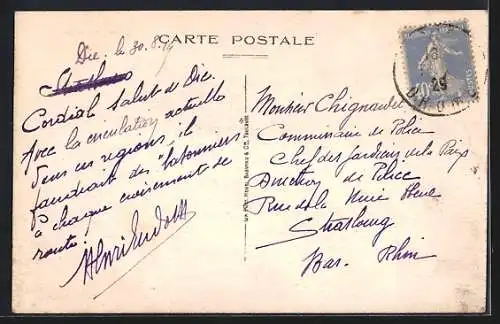 CARTE POSTALE
Die. le 30.8.
Cordial Salut de Die.
Avec la circulation actuelle
dans ces régions, il
faudrait des
à chaque croisement de
route!
Henri
Monsieur
Commissaire de Police
Chef des Gardiens de la Paix
Direction de Police
Rue de la Nuée Bleue
Strasbourg
Bas. Rhin
29
DROME